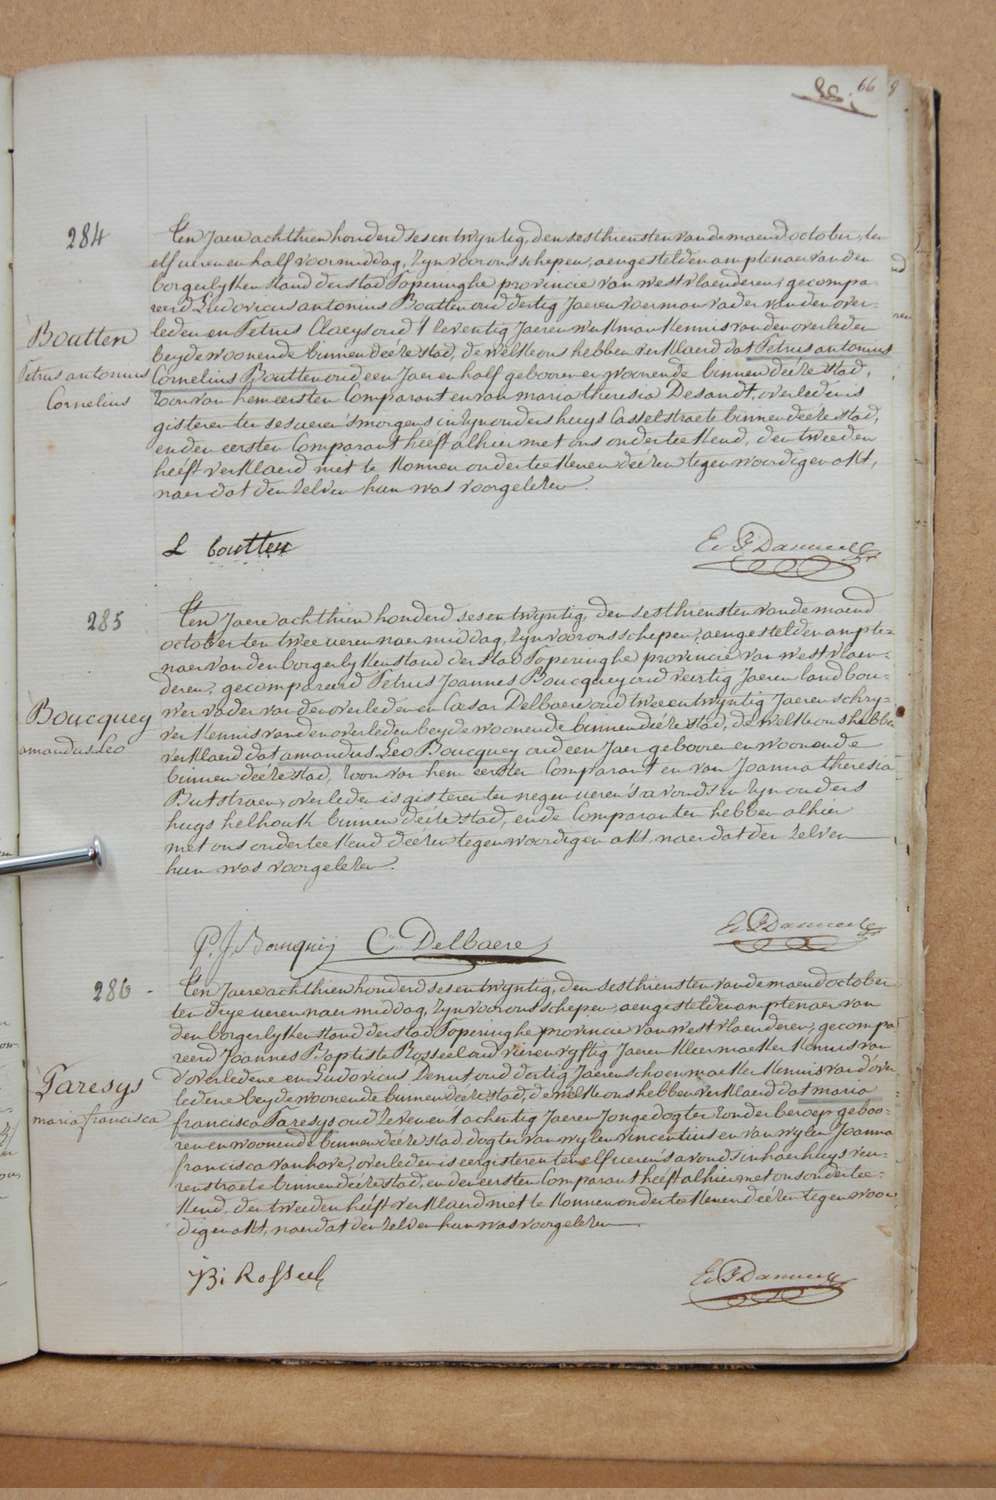 66
284
Boutten
Petrus antonius
Cornelius
Ten Jaere achthien honderd sesentwyntig, den sesthiensten van de maend october, ten
elf ueren en half voormiddag, Zyn voor ons schepen, aengestelden amptenaer van den
borgerlyken stand der stad Poperinghe provincie van westvlaenderen, gecompa-
reerd Ludovicus antonius Boutten oud dertig Jaeren voerman vader van den over-
leden en Petrus Claeys oud t'seventig Jaeren werkman kennis van den overleden
beyde woonende binnen deéze stad, de welke ons hebben verklaerd dat Petrus antonius
Cornelius Boutten oud een Jaer en half gebooren en woonende binnen deéze stad,
Zoon van hem eersten Comparant en van maria theresia Desandt, overleden is
gisteren ten ses ueren s'morgens in Zyn ouders huys Casselstraete binnen deéze stad,
en den eersten Comparant heeft alhier met ons onderteekend, den tweeden
heéft verklaerd niet te konnen onderteekenen deézen tegenwoordigen akt,
naer dat den Zelven hun was voorgelezen.
L boutten
285
Boucquey
amandus Leo
Ten Jaere achthien honderd sesentwyntig, den sesthiensten van de maend
october ten twee ueren naermiddag, Zyn voor ons schepen, aengestelden ampte-
naer van den borgerlyken stand der stad Poperinghe provincie van westvlaen-
deren, gecompareerd Petrus Joannes Boucquey oud veertig Jaeren landbou-
wer vader van den overleden en Cæsar Delbaere oud tweeentwyntig Jaeren schry-
ver kennis van den overleden beyde woonende binnen deéze stad, de welke ons hebben
verklaerd dat amandus Leo Boucquey oud een Jaer gebooren en woonende
binnen deéze stad, Zoon van hem eersten Comparant en van Joanna theresia
Butstraen, overleden is gisteren ten negen ueren s'avonds in Zyn ouders
huys helhouk binnen deéze stad, en de Comparanten hebben alhier
met ons onderteekend deézen tegenwoordigen akt, naer dat den Zelven
hun was voorgelezen.
P.J. Boucquey C Delbaere
286
Paresys
maria francisca
Ten Jaere achthien honderd sesentwyntig, den sesthiensten van de maend october
ten drye ueren naermiddag, Zyn voor ons schepen, aengestelden amptenaer van
den borgerlyken stand der stad Poperinghe provincie van westvlaenderen, gecompa-
reerd Joannes Baptiste Rosseel oud vierenvyftig Jaeren kleermaeker kennis van
d'overledene en Ludovicus Denut oud dertig Jaeren schoenmaeker kennis van d'over-
ledene beyde woonende binnen deéze stad, de welke ons hebben verklaerd dat maria
francisca Paresys oud zevenentachentig Jaeren Jonge dogter zonder beroep geboo-
ren en woonende binnen deéze stad, dogter van wylen vincentius en van wylen Joanna
francisca vanhove, overleden is eergisteren ten elf ueren s'avonds in haer huys veu-
renstraete binnen deéze stad, en den eersten Comparant heeft alhier met ons ondertee-
kend, den tweeden heéft verklaerd niet te konnen onderteekenen deézen tegenwoor-
digen akt, naer dat den Zelven hun was voorgelezen
JBi Rosseel